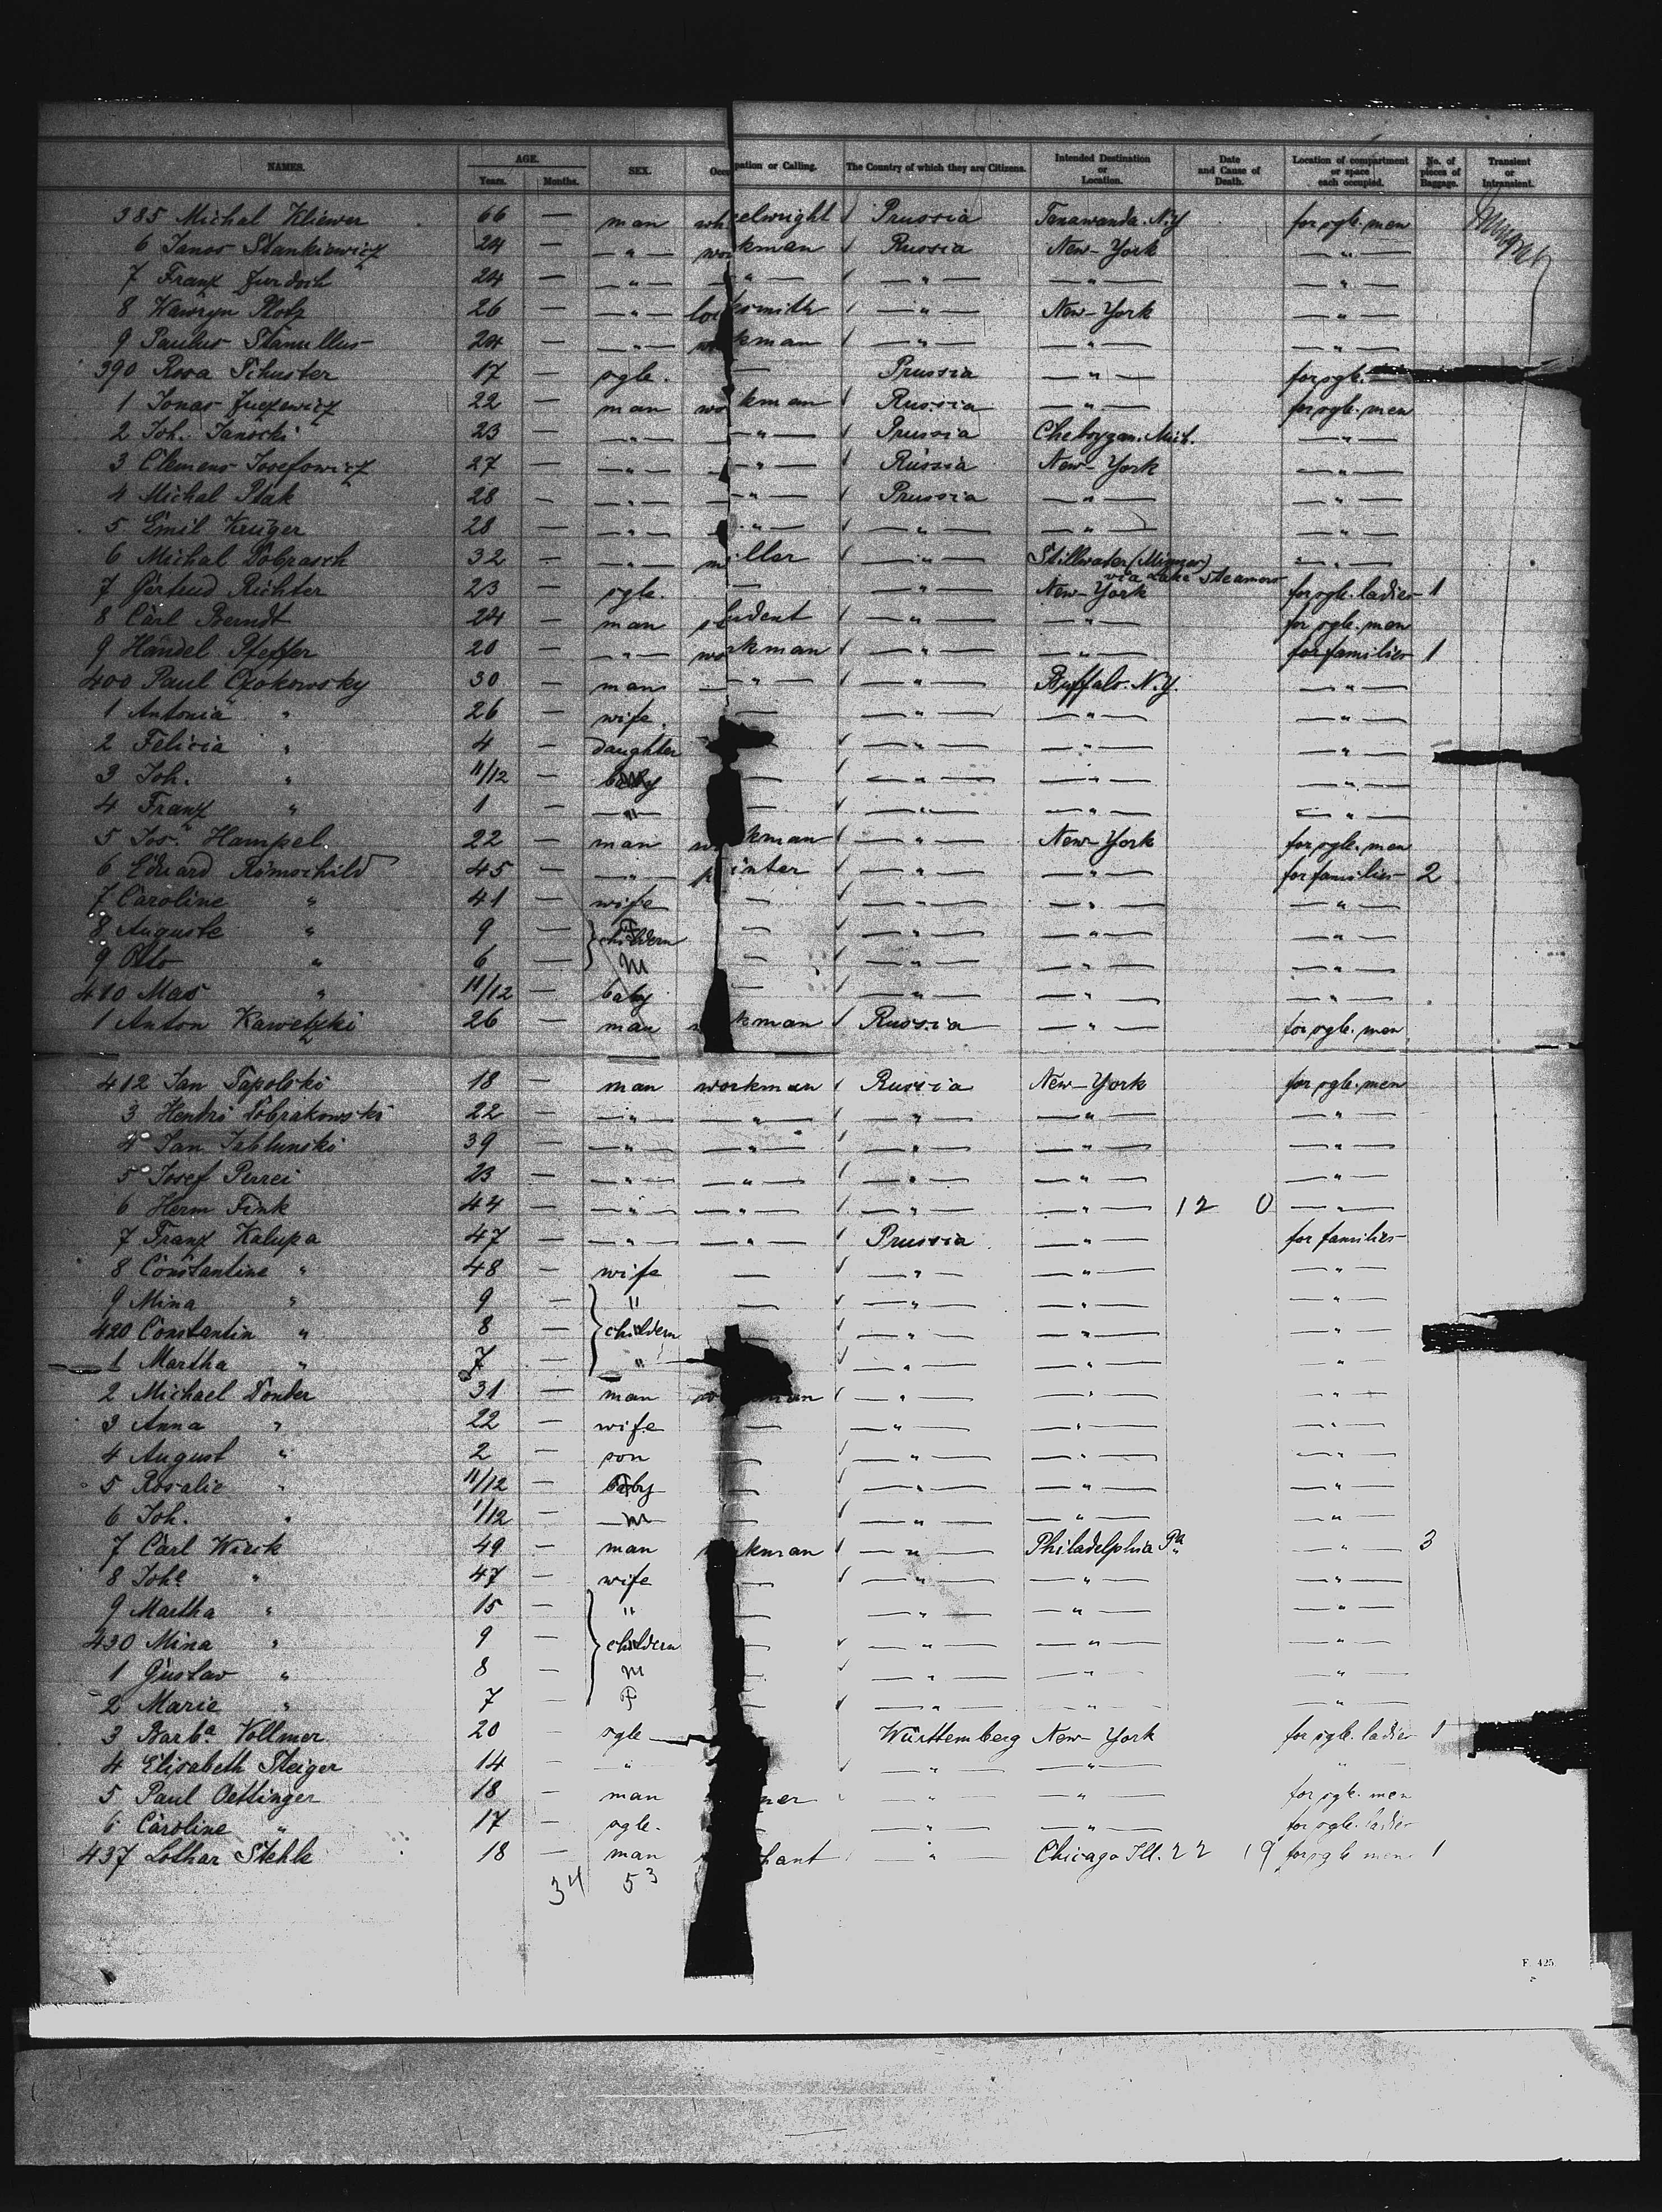 NAMES. AGE. Years. Months. SEX. Occupation or Calling. The Country of which they are Citizens. Intended Destination or Location. Date and Cause of Death. Location of compartment or space each occupied. No. of pieces of Baggage. Transient or Intransient.
385 Michal Kliewer 66 — man wheelwright Prussia Tonawanda. N.Y for sgle. men
6 Janos Stankiewicz 24 — —"— workman Russia New-York —"—
7 Franz 24 — —"— —"— —"— —"— —"—
8 Wawryn Plotz 26 — —"— locksmith —"— New-York —"—
9 Paulus Stanullus 24 — —"— workman —"— —"— —"—
390 Rosa Schuster 17 — sgle. — Prussia —"— for sgle.
1 Jonas 22 — man workman Russia —"— for sgle. men
2 Joh. Janocki 23 — —"— —"— Prussia Cheboygan. Mich. —"—
3 Clemens Josefowicz 27 — —"— —"— Russia New-York —"—
4 Michal Ptak 28 — —"— —"— Prussia —"— —"—
5 Emil Krüger 28 — —"— —"— —"— —"— —"—
6 Michal Dobrasch 32 — —"— miller —"— Stillwater (Minnes) —"—
via Lake Steamers
7 Gertrud Richter 23 — sgle. — —"— New-York for sgle. ladies 1
8 Carl Berndt 24 — man student —"— —"— for sgle. men
9 Handel Pfeffer 20 — —"— workman —"— —"— for families 1
400 Paul Czokowsky 30 — man —"— —"— Buffalo. N.Y. —"—
1 Antonia " 26 — wife. — —"— —"— —"—
2 Felicia " 4 — daughter — —"— —"— —"—
3 Joh. " 11/12 — baby — —"— —"— —"—
4 Franz " 1 — —"— — —"— —"— —"—
5 Jos. Hampel 22 — man workman —"— New-York for sgle. men
6 Eduard Römschild 45 — —"— printer —"— —"— for families 2
7 Caroline " 41 — wife — —"— —"— —"—
8 Auguste " 9 — childern F — —"— —"— —"—
9 Otto " 6 — M — —"— —"— —"—
410 Max " 11/12 — baby — —"— —"— —"—
1 Anton Kawetzki 26 — man workman Russia —"— for sgle. men
412 Jan Tapolski 18 — man workman Russia New-York for sgle. men
3 Hendri Dobrakowski 22 — —"— —"— —"— —"— —"—
4 Jan Jablunski 39 — —"— —"— —"— —"— —"—
5 Josef Perrei 23 — —"— —"— —"— —"— —"—
6 Herm Fink 44 — —"— —"— —"— —"— 12 0 —"—
7 Franz Kalupa 47 — —"— —"— Prussia —"— for families
8 Constantine " 48 — wife — —"— —"— —"—
9 Mina " 9 — " — —"— —"— —"—
420 Constantin " 8 — childern —"— —"— —"—
1 Martha " 7 — " —"— —"— —"—
2 Michael Donder 31 — man workman —"— —"— —"—
3 Anna " 22 — wife — —"— —"— —"—
4 August " 2 — son — —"— —"— —"—
5 Rosalie " 11/12 — baby — —"— —"— —"—
6 Joh. " 1/12 — M — —"— —"— —"—
7 Carl Wieck 49 — man workman —"— Philadelphia Pa —"— 3
8 Johe " 47 — wife — —"— —"— —"—
9 Martha " 15 — " — —"— —"— —"—
430 Mina " 9 — childern — —"— —"— —"—
1 Gustav " 8 — M — —"— —"— —"—
2 Marie " 7 — F — —"— —"— —"—
3 Barba. Vollmer 20 — sgle Württemberg New-York for sgle. ladies 1
4 Elisabeth Steiger 14 — " —"— —"— "
5 Paul Oettinger 18 — man —"— —"— for sgle. men
6 Caroline " 17 — sgle. —"— —"— for sgle. ladies
437 Lothar Stehle 18 — man merchant " Chicago Ill. 22 19 for sgle men 1
34 53
F. 425